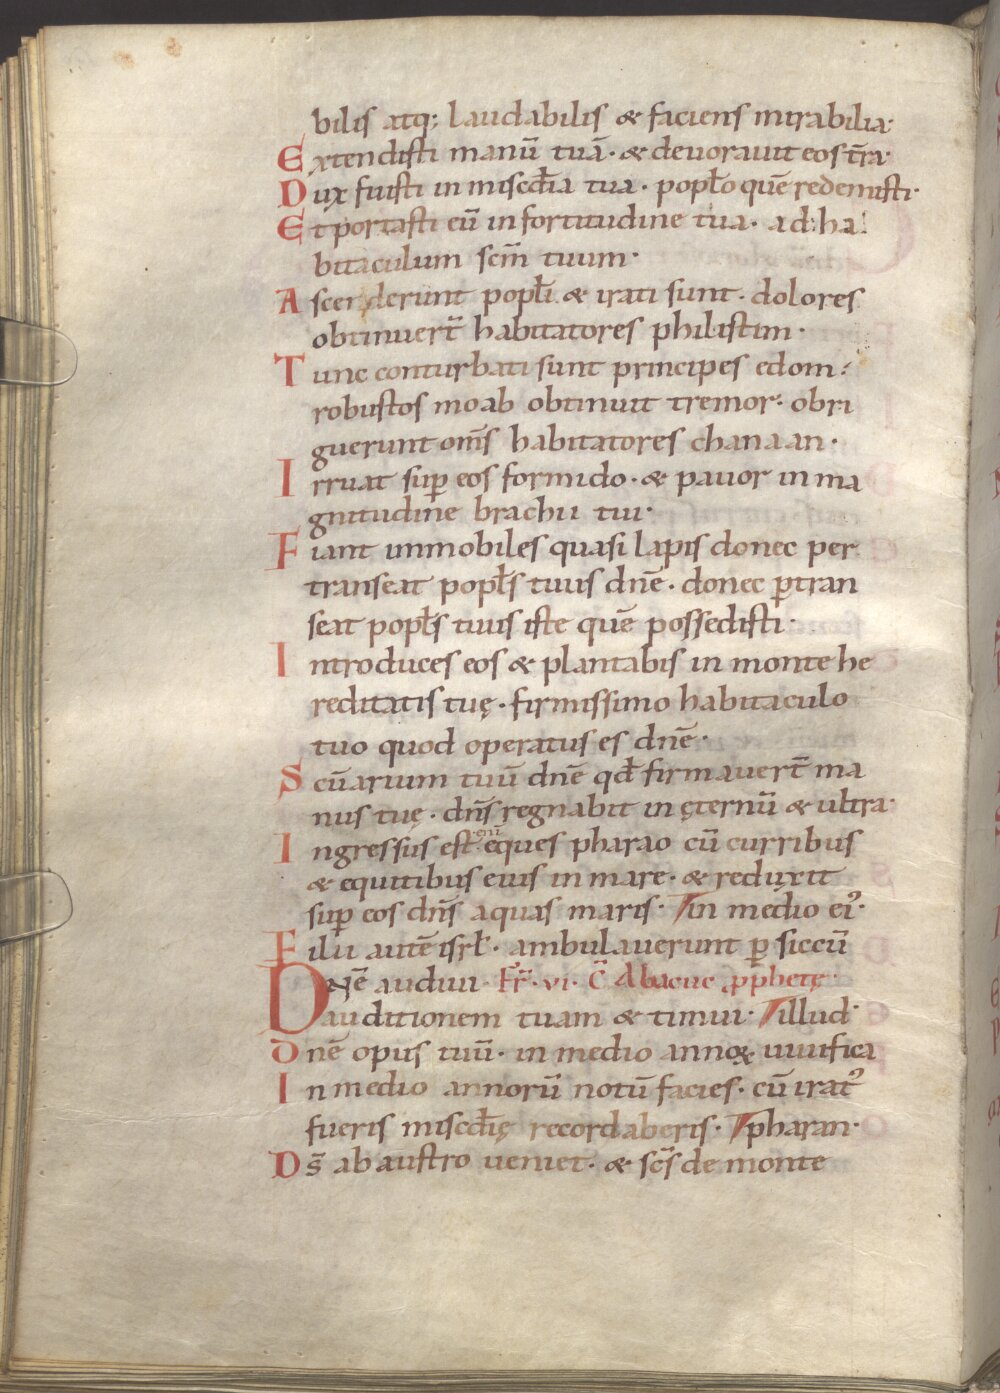 bilis atq; laudabilis & faciens mirabilia·
Extendisti manū tuā· & deuorauit eos t̄ra·
Dux fuisti in misc̄dia tua· pop̄lo quē redemisti·
Et portasti eū in fortitudine tua· ad ha
bitaculum sc̄m tuum·
Ascenderunt pop̄li & irati sunt· dolores
obtinuer̄t habitatores philistim·
Tunc conturbati sunt principes edom·
robustos moab obtinuit tremor· obri
guerunt om̄s habitatores chanaan·
Irruat sup̄ eos formido· & pauor in ma
gnitudine brachii tui·
Fiant immobiles quasi lapis donec per
transeat pop̄ls tuus dn̄e· donec p̄tran
seat pop̄ls tuus iste quē possedisti·
Introduces eos & plantabis in monte he
reditatis tuę· firmissimo habitaculo
tuo quod operatus es dn̄e·
Scūarium tuū dn̄e qd̄ firmauer̄t ma
nus tuę· dn̄s regnabit in ęternū & ultra·
Ingressus est eni̅ eques pharao cū curribus
& equitibus eius in mare· & reduxit
sup̄ eos dn̄s aquas maris· / in medio ei᾿·
Filii autē isrl̄· ambulauerunt p̄ siccū
Dn̄e audiui· Fr̄· vi· C̄ Abacuc pp̄hetę·
auditionem tuam & timui· / illud·
Dn̄e opus tuū· in medio annoꝝ uiuifica
In medio annorū notū facies· cū irat᾿
fueris misc̄dię recordaberis· / pharan·
Ds̄ ab austro ueniet· & sc̄s de monte